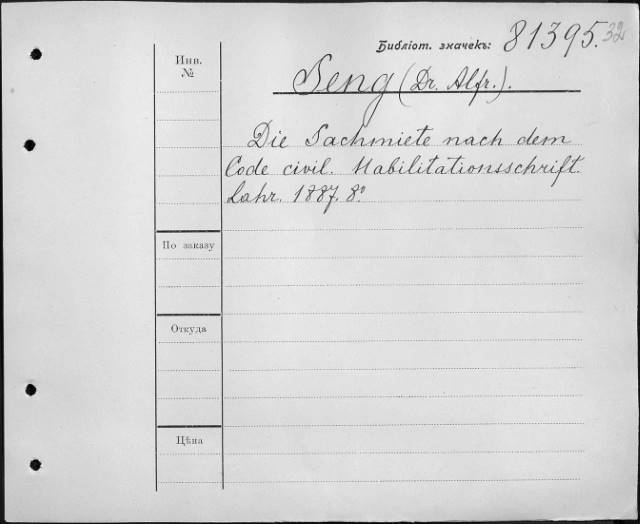 Библіот. значекъ: 81395.
32
Инв.
№
Seng (Dr. Alfr.).
Die Sachmiete nach dem
Code civil. Habilitationsschrift.
Lahr. 1887. 8º
По заказу
Откуда
Цѣна